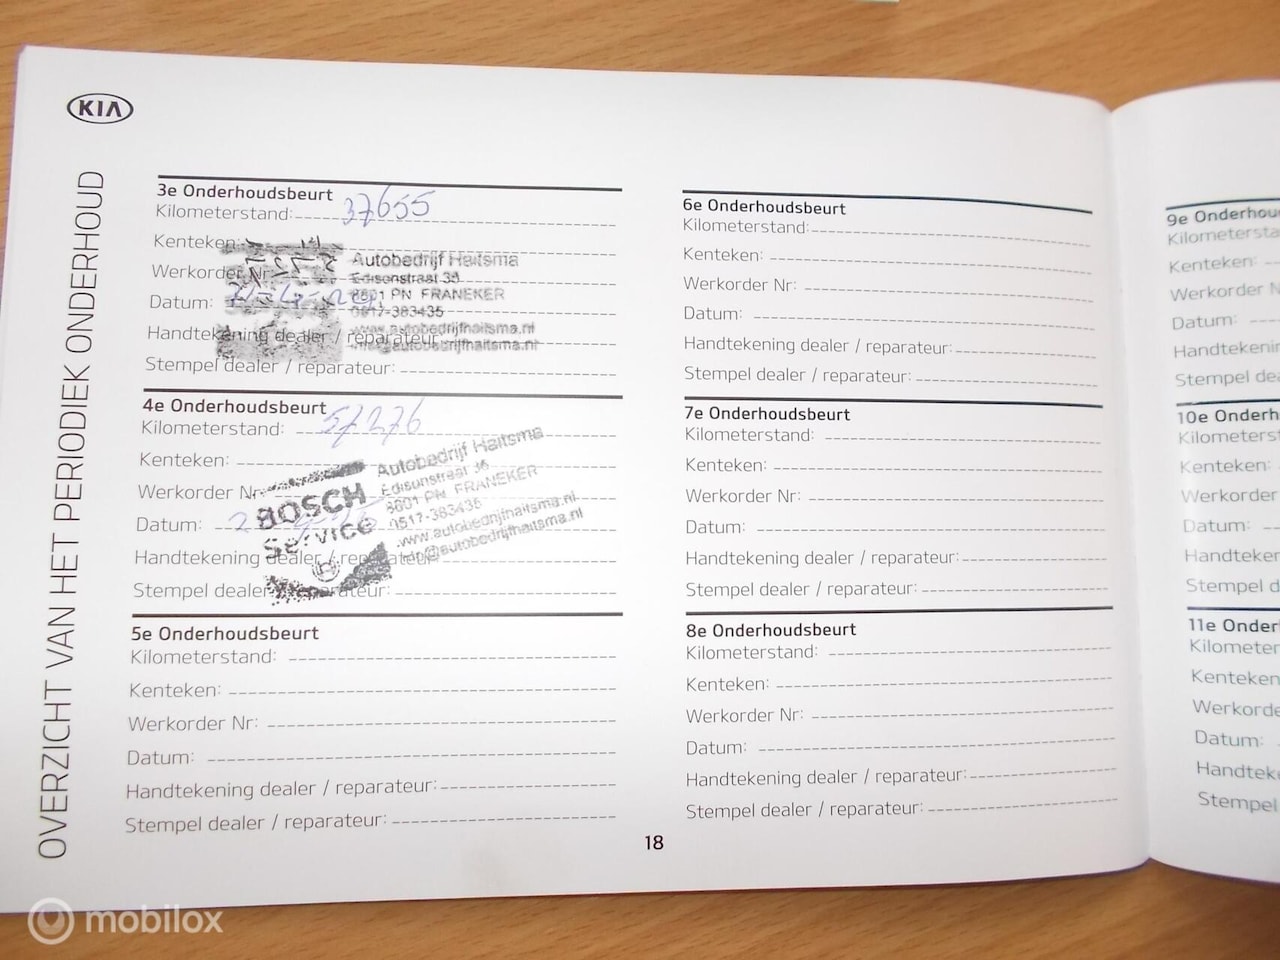 KIA
OVERZICHT VAN HET PERIODIEK ONDERHOUD
3e Onderhoudsbeurt
Kilometerstand: 37655
Kenteken:
Werkorder Nr:
Datum:
Handtekening dealer / reparateur:
Stempel dealer / reparateur:
Autobedrijf Haitsma
Edisonstraat 35
8801 PN FRANEKER
0517-383435
www.autobedrijfhaitsma.nl
4e Onderhoudsbeurt
Kilometerstand: 57276
Kenteken:
Werkorder Nr:
Datum:
Handtekening dealer / reparateur:
Stempel dealer / reparateur:
BOSCH
Service
Autobedrijf Haitsma
PN FRANEKER
0517-383435
www.autobedrijfhaitsma.nl
5e Onderhoudsbeurt
Kilometerstand:
Kenteken:
Werkorder Nr:
Datum:
Handtekening dealer / reparateur:
Stempel dealer / reparateur:
6e Onderhoudsbeurt
Kilometerstand:
Kenteken:
Werkorder Nr:
Datum:
Handtekening dealer / reparateur:
Stempel dealer / reparateur:
7e Onderhoudsbeurt
Kilometerstand:
Kenteken:
Werkorder Nr:
Datum:
Handtekening dealer / reparateur:
Stempel dealer / reparateur:
8e Onderhoudsbeurt
Kilometerstand:
Kenteken:
Werkorder Nr:
Datum:
Handtekening dealer / reparateur:
Stempel dealer / reparateur:
18
9e Onderhou
Kilometersta
Kenteken:
Werkorder N
Datum:
Handtekenin
Stempel dea
10e Onderh
Kilometerst
Kenteken:
Werkorder
Datum:
Handtekenin
Stempel d
11e Onder
Kilometer
Kenteken
Werkorde
Datum:
Handteke
Stempel
mobilox